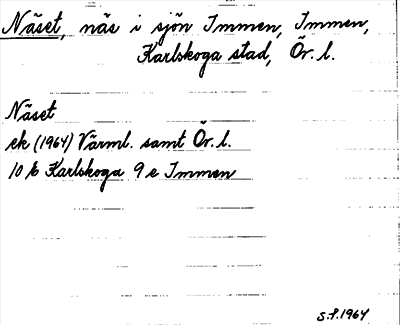 Näset, näs i sjön Immen, Immen,
Karlskoga stad, Ör. l.
Näset
ek (1964) Värml. samt Ör. l.
10 E Karlskoga 9 e Immen
S.P. 1964